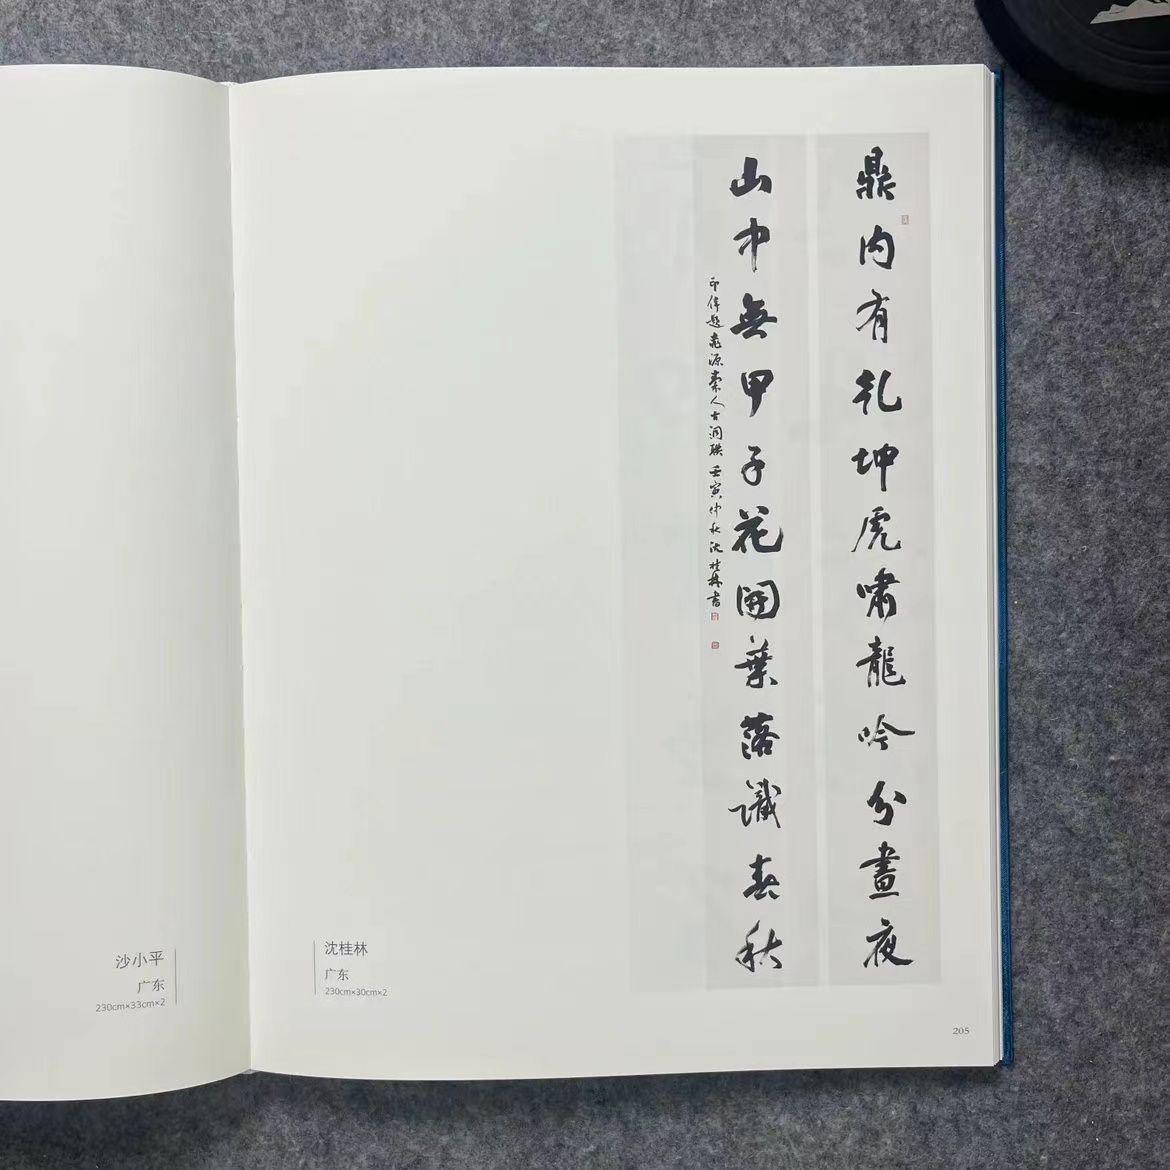 鼎内有乾坤虎啸龍吟分晝夜
山中無甲子花開葉落識春秋
人古洞联壬寅仲秋沈桂林書
沙小平
广东
230cm×33cm×2
沈桂林
广东
230cm×30cm×2
205